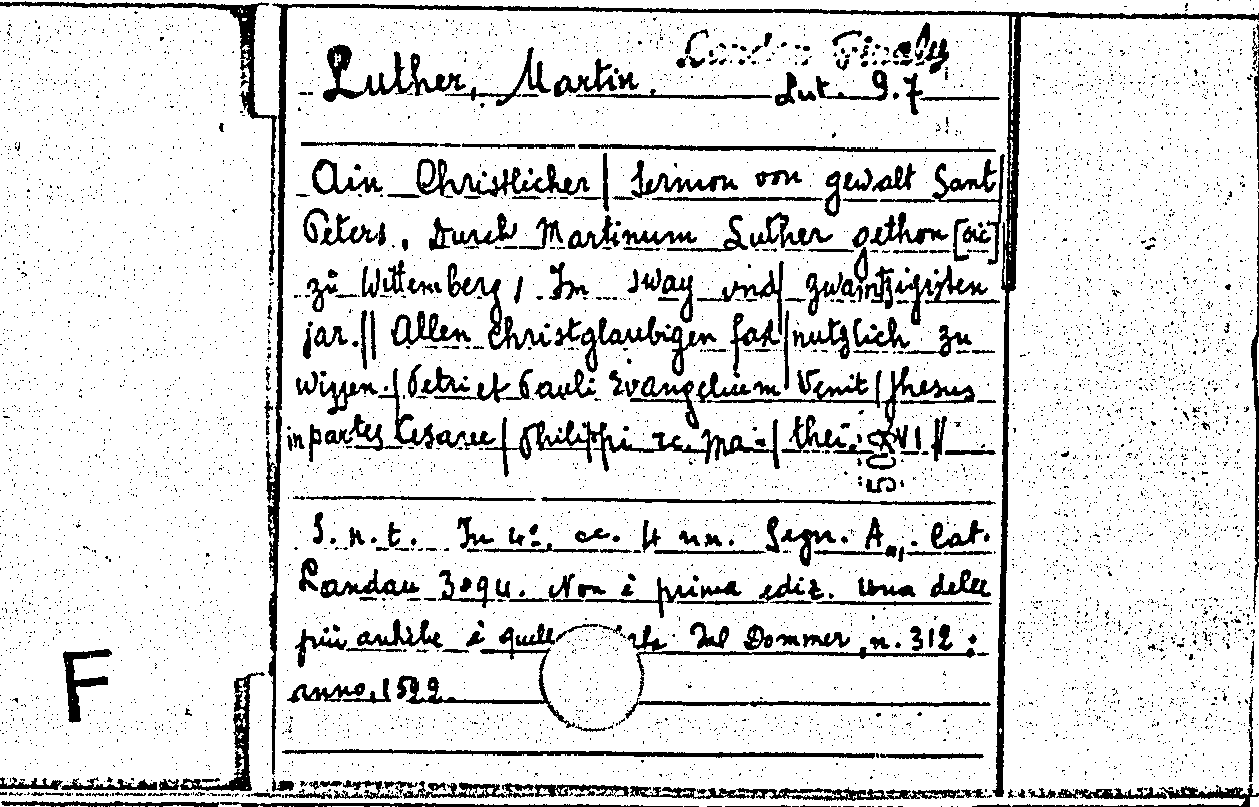 Landau Finaly
Luther, Martin. Lut. 9.7
Ain Christlicher | Sermon von gewalt Sant |
Peters, Durch Martinum Luther gethon [sic]
zů Wittemberg / Im zway vnd | zwaintzigisten
jar. || Allen christglaubigen fast | nutzlich zu
wissen. | Petri et Pauli Evangelium Venit | Jhesus
in partes Cesaree | Philippi ꝛc. Ma- | thei. XVI ||
508
S. n. t. In 4º, cc. 4 nn. Segn. A. Cat.
Landau 3094. Non è prima ediz. Una delle
più antiche è quella dal Dommer, n. 312:
anno, 1522.
F